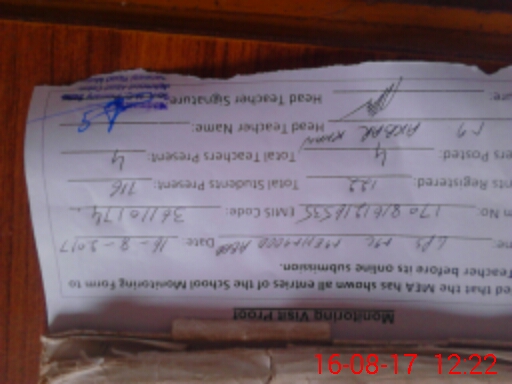 Monitoring Visit Proof
ed that the MEA has shown all entries of the School Monitoring Form to
Teacher before its online submission.
me: GPS MC MEHMOOD ABAD Date: 16-8-2017
n No: 170816121653S EMIS Code: 36110174
nts Registered: 122 Total Students Present: 116
ers Posted: 4 Total Teachers Present: 4
AKBAR KHAN Head Teacher Name:
ure: Head Teacher Signature:
16-08-17 12:22